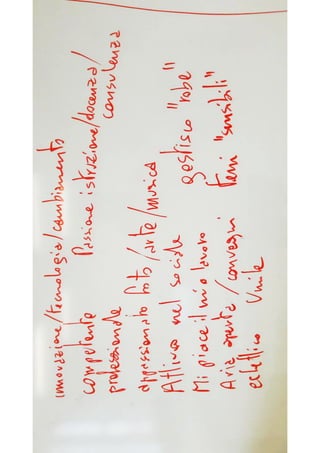 innovazione/tecnologia/cambiamento
competente Passione istruzione/docenza/
professionale consulenza
appassionato foto/arte/musica
Attivo nel sociale gestisco "robe"
Mi piace il mio lavoro Temi "sensibili"
Aria aperta/convegni
eclettico Umile